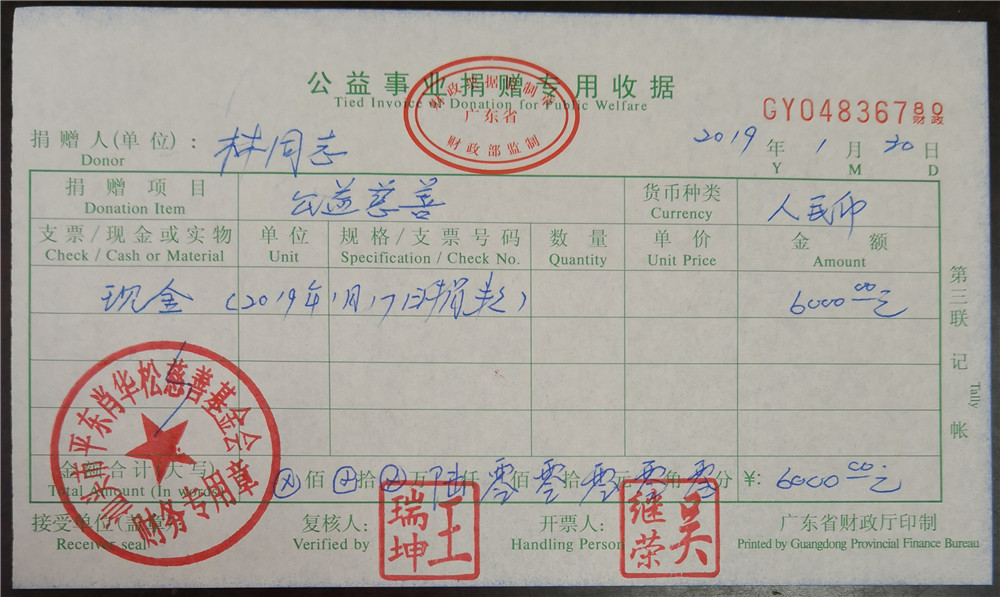 公益事业捐赠专用收据
Tied Invoice of Donation for Public Welfare
广东省
财政部监制
GY04836780
财政
捐赠人(单位): 林同志
Donor
2019 年 1 月 30 日
Y M D
捐赠项目 公益慈善 货币种类 人民币
Donation Item Currency
支票/现金或实物 单位 规格/支票号码 数量 单价 金额
Check / Cash or Material Unit Specification / Check No. Quantity Unit Price Amount
现金 (2019年1月17日捐款) 6000.00元
第三联 记帐
Tally
普宁市平东肖华松慈善基金会
财务专用章
金额合计(大写) ⊗佰⊗拾⊗万陆仟零佰零拾零元零角零分 ¥: 6000.00元
Total Amount (In words)
接受单位(盖章) 复核人: 王瑞坤 开票人: 吴继荣 广东省财政厅印制
Receiver seal Verified by Handling Person Printed by Guangdong Provincial Finance Bureau